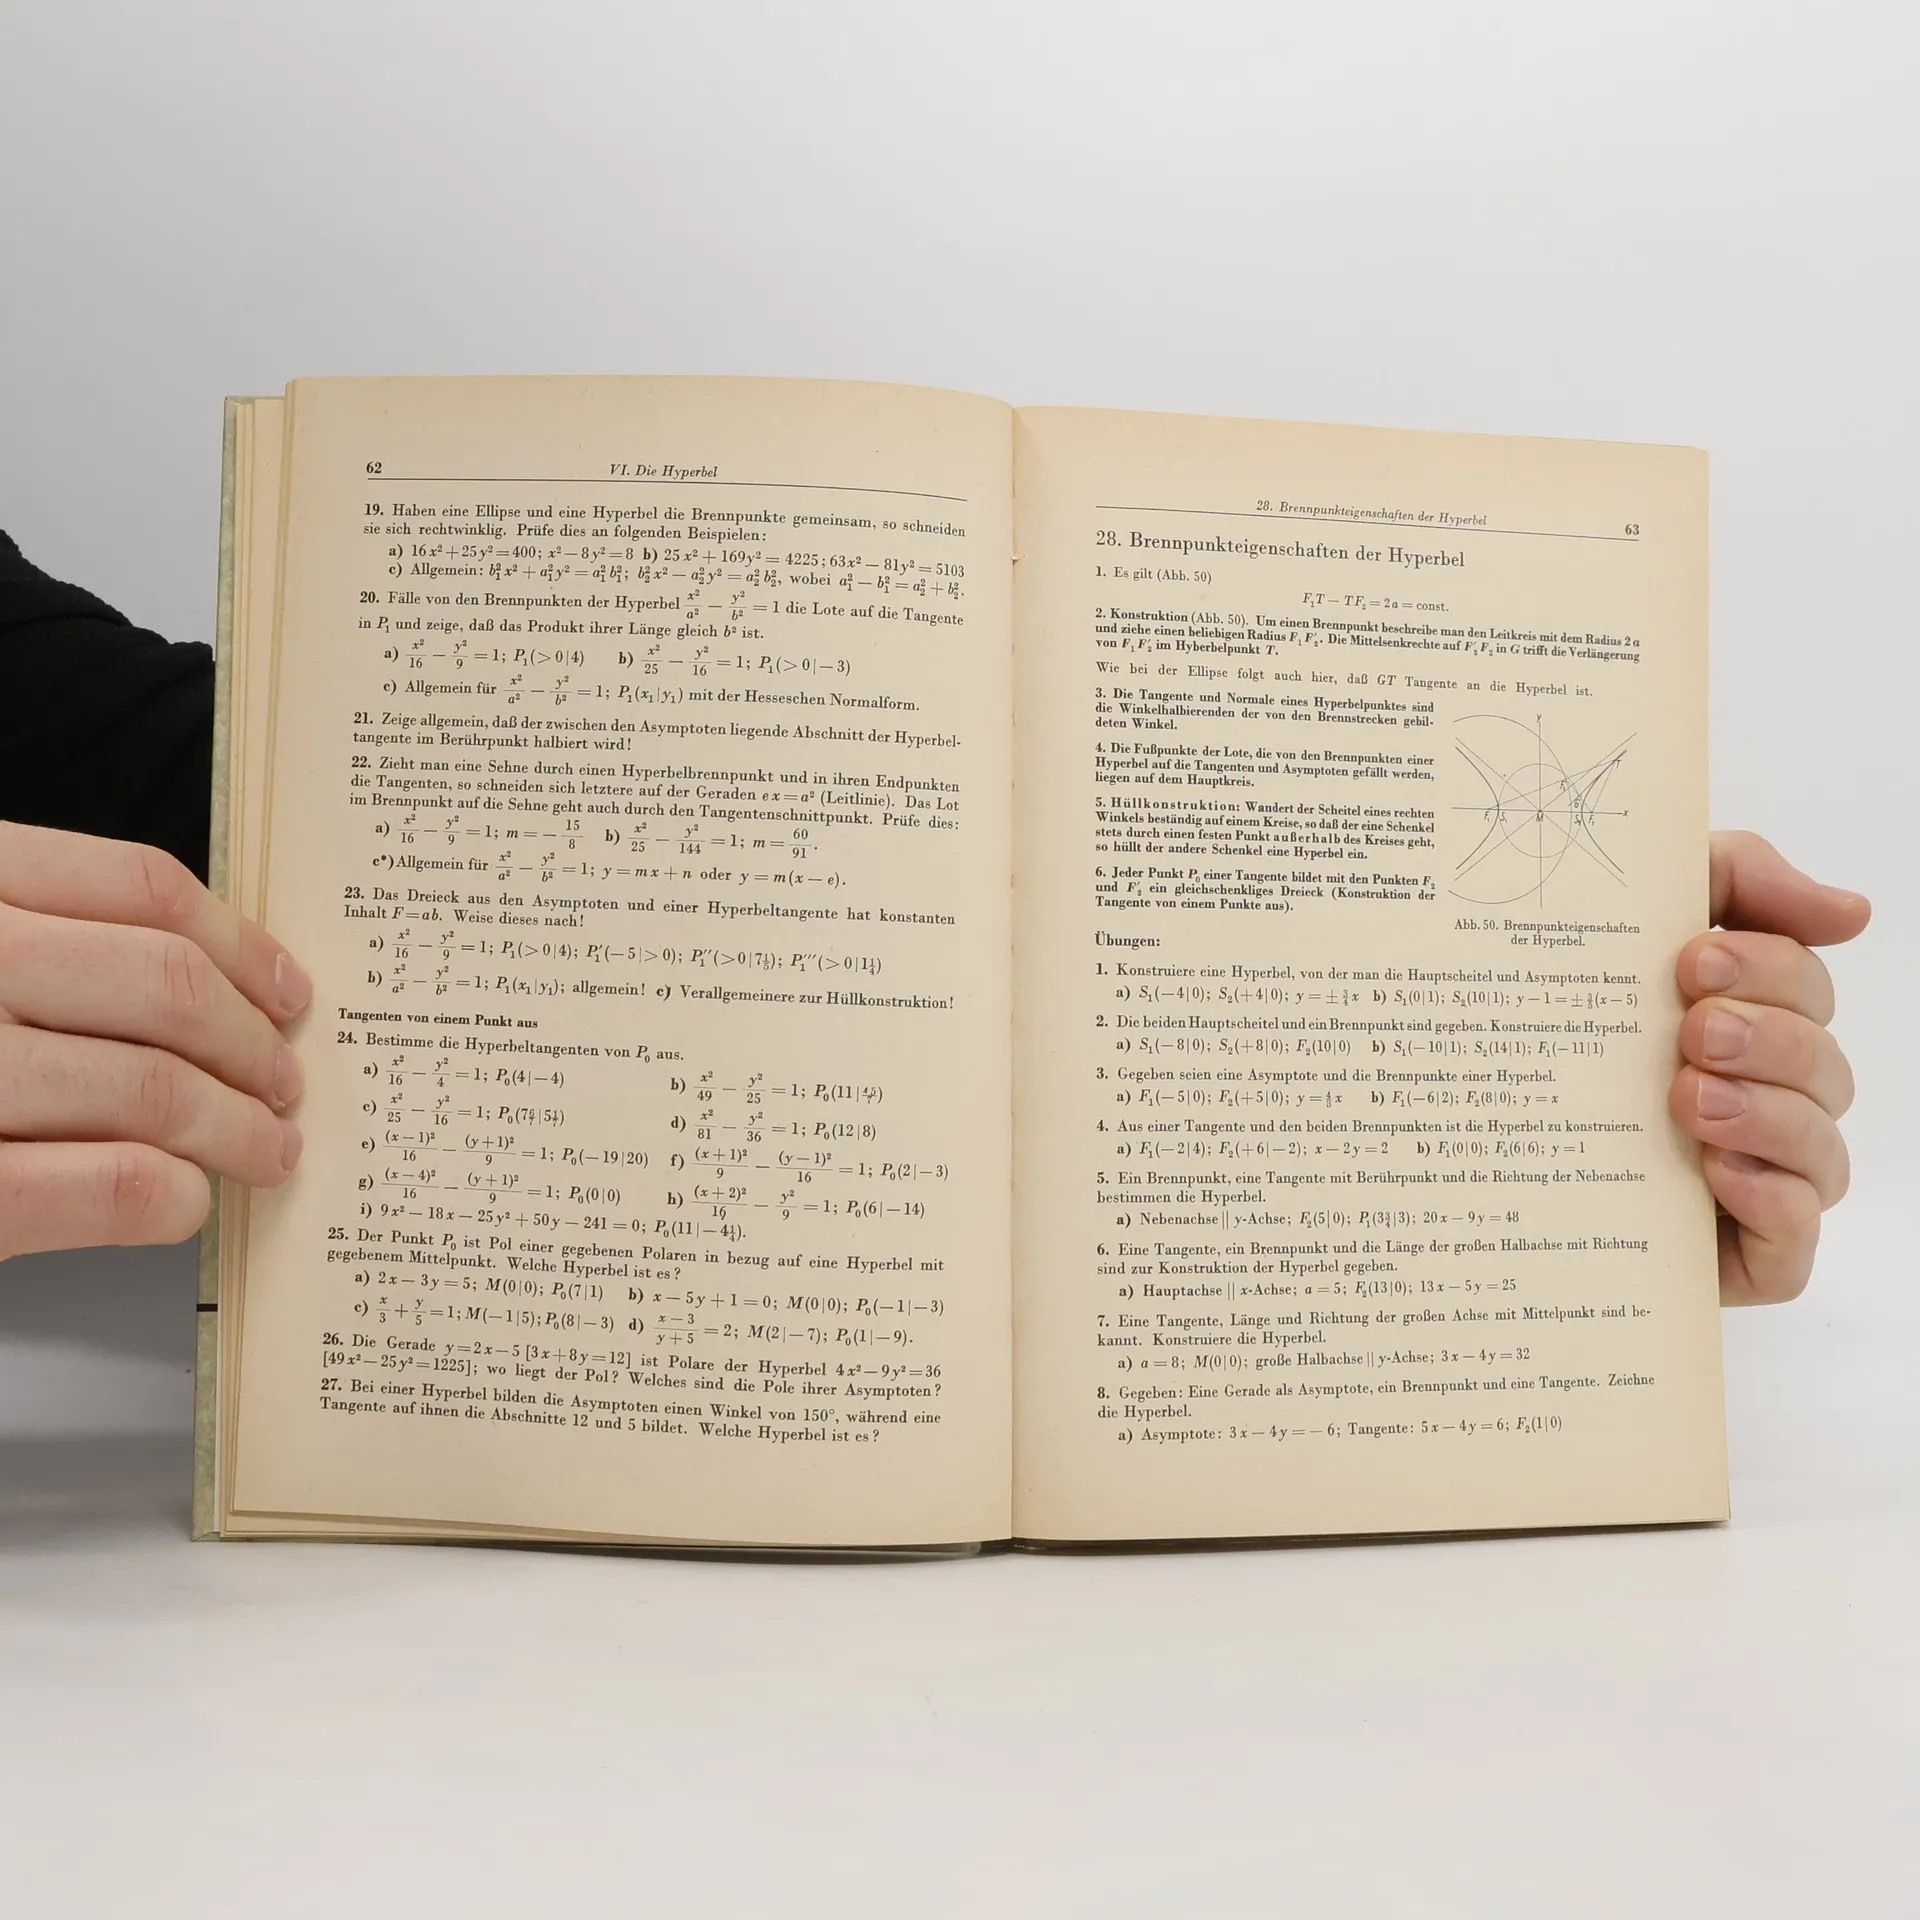 62
VI. Die Hyperbel
19. Haben eine Ellipse und eine Hyperbel die Brennpunkte gemeinsam, so schneiden
sie sich rechtwinklig. Prüfe dies an folgenden Beispielen:
a) 16x²+25y²=400; x²−8y²=8 b) 25x² + 169y² = 4225; 63x² − 81y² = 5103
c) Allgemein: b₁²x² + a₁²y² = a₁²b₁²; b₂²x² − a₂²y² = a₂²b₂², wobei a₁² − b₁² = a₂² + b₂².
20. Fälle von den Brennpunkten der Hyperbel x²/a² − y²/b² = 1 die Lote auf die Tangente
in P₁ und zeige, daß das Produkt ihrer Länge gleich b² ist.
a) x²/16 − y²/9 = 1; P₁(>0|4) b) x²/25 − y²/16 = 1; P₁(>0|−3)
c) Allgemein für x²/a² − y²/b² = 1; P₁(x₁|y₁) mit der Hesseschen Normalform.
21. Zeige allgemein, daß der zwischen den Asymptoten liegende Abschnitt der Hyperbel-
tangente im Berührpunkt halbiert wird!
22. Zieht man eine Sehne durch einen Hyperbelbrennpunkt und in ihren Endpunkten
die Tangenten, so schneiden sich letztere auf der Geraden ex=a² (Leitlinie). Das Lot
im Brennpunkt auf die Sehne geht auch durch den Tangentenschnittpunkt. Prüfe dies:
a) x²/16 − y²/9 = 1; m = − 15/8 b) x²/25 − y²/144 = 1; m = 60/91.
c*) Allgemein für x²/a² − y²/b² = 1; y = mx + n oder y = m(x − e).
23. Das Dreieck aus den Asymptoten und einer Hyperbeltangente hat konstanten
Inhalt F=ab. Weise dieses nach!
a) x²/16 − y²/9 = 1; P₁(>0|4); P₁′(−5|>0); P₁″(>0|7⅕); P₁‴(>0|1¼)
b) x²/a² − y²/b² = 1; P₁(x₁|y₁); allgemein! c) Verallgemeinere zur Hüllkonstruktion!
Tangenten von einem Punkt aus
24. Bestimme die Hyperbeltangenten von P₀ aus.
a) x²/16 − y²/4 = 1; P₀(4|−4) b) x²/49 − y²/25 = 1; P₀(11|45/7)
c) x²/25 − y²/16 = 1; P₀(7 6/7|5 1/7) d) x²/81 − y²/36 = 1; P₀(12|8)
e) (x−1)²/16 − (y+1)²/9 = 1; P₀(−19|20) f) (x+1)²/9 − (y−1)²/16 = 1; P₀(2|−3)
g) (x−4)²/16 − (y+1)²/9 = 1; P₀(0|0) h) (x+2)²/16 − y²/9 = 1; P₀(6|−14)
i) 9x² − 18x − 25y² + 50y − 241 = 0; P₀(11|−4¼).
25. Der Punkt P₀ ist Pol einer gegebenen Polaren in bezug auf eine Hyperbel mit
gegebenem Mittelpunkt. Welche Hyperbel ist es?
a) 2x − 3y = 5; M(0|0); P₀(7|1) b) x − 5y + 1 = 0; M(0|0); P₀(−1|−3)
c) x/3 + y/5 = 1; M(−1|5); P₀(8|−3) d) (x−3)/(y+5) = 2; M(2|−7); P₀(1|−9).
26. Die Gerade y=2x−5 [3x+8y=12] ist Polare der Hyperbel 4x²−9y²=36
[49x²−25y²=1225]; wo liegt der Pol? Welches sind die Pole ihrer Asymptoten?
27. Bei einer Hyperbel bilden die Asymptoten einen Winkel von 150°, während eine
Tangente auf ihnen die Abschnitte 12 und 5 bildet. Welche Hyperbel ist es?
28. Brennpunkteigenschaften der Hyperbel
63
28. Brennpunkteigenschaften der Hyperbel
1. Es gilt (Abb. 50)
F₁T − TF₂ = 2a = const.
2. Konstruktion (Abb. 50). Um einen Brennpunkt beschreibe man den Leitkreis mit dem Radius 2a
und ziehe einen beliebigen Radius F₁F₂′. Die Mittelsenkrechte auf F₂′F₂ in G trifft die Verlängerung
von F₁F₂′ im Hyberbelpunkt T.
Wie bei der Ellipse folgt auch hier, daß GT Tangente an die Hyperbel ist.
3. Die Tangente und Normale eines Hyperbelpunktes sind
die Winkelhalbierenden der von den Brennstrecken gebil-
deten Winkel.
4. Die Fußpunkte der Lote, die von den Brennpunkten einer
Hyperbel auf die Tangenten und Asymptoten gefällt werden,
liegen auf dem Hauptkreis.
5. Hüllkonstruktion: Wandert der Scheitel eines rechten
Winkels beständig auf einem Kreise, so daß der eine Schenkel
stets durch einen festen Punkt außerhalb des Kreises geht,
so hüllt der andere Schenkel eine Hyperbel ein.
6. Jeder Punkt P₀ einer Tangente bildet mit den Punkten F₂
und F₂′ ein gleichschenkliges Dreieck (Konstruktion der
Tangente von einem Punkte aus).
y
T
G
F₁ S₁ M S₂ x
Abb. 50. Brennpunkteigenschaften
der Hyperbel.
Übungen:
1. Konstruiere eine Hyperbel, von der man die Hauptscheitel und Asymptoten kennt.
a) S₁(−4|0); S₂(+4|0); y = ± ¾x b) S₁(0|1); S₂(10|1); y − 1 = ± ⅗(x − 5)
2. Die beiden Hauptscheitel und ein Brennpunkt sind gegeben. Konstruiere die Hyperbel.
a) S₁(−8|0); S₂(+8|0); F₂(10|0) b) S₁(−10|1); S₂(14|1); F₁(−11|1)
3. Gegeben seien eine Asymptote und die Brennpunkte einer Hyperbel.
a) F₁(−5|0); F₂(+5|0); y = 4/3 x b) F₁(−6|2); F₂(8|0); y = x
4. Aus einer Tangente und den beiden Brennpunkten ist die Hyperbel zu konstruieren.
a) F₁(−2|4); F₂(+6|−2); x − 2y = 2 b) F₁(0|0); F₂(6|6); y = 1
5. Ein Brennpunkt, eine Tangente mit Berührpunkt und die Richtung der Nebenachse
bestimmen die Hyperbel.
a) Nebenachse || y-Achse; F₂(5|0); P₁(3¾|3); 20x − 9y = 48
6. Eine Tangente, ein Brennpunkt und die Länge der großen Halbachse mit Richtung
sind zur Konstruktion der Hyperbel gegeben.
a) Hauptachse || x-Achse; a = 5; F₂(13|0); 13x − 5y = 25
7. Eine Tangente, Länge und Richtung der großen Achse mit Mittelpunkt sind be-
kannt. Konstruiere die Hyperbel.
a) a = 8; M(0|0); große Halbachse || y-Achse; 3x − 4y = 32
8. Gegeben: Eine Gerade als Asymptote, ein Brennpunkt und eine Tangente. Zeichne
die Hyperbel.
a) Asymptote: 3x − 4y = − 6; Tangente: 5x − 4y = 6; F₂(1|0)